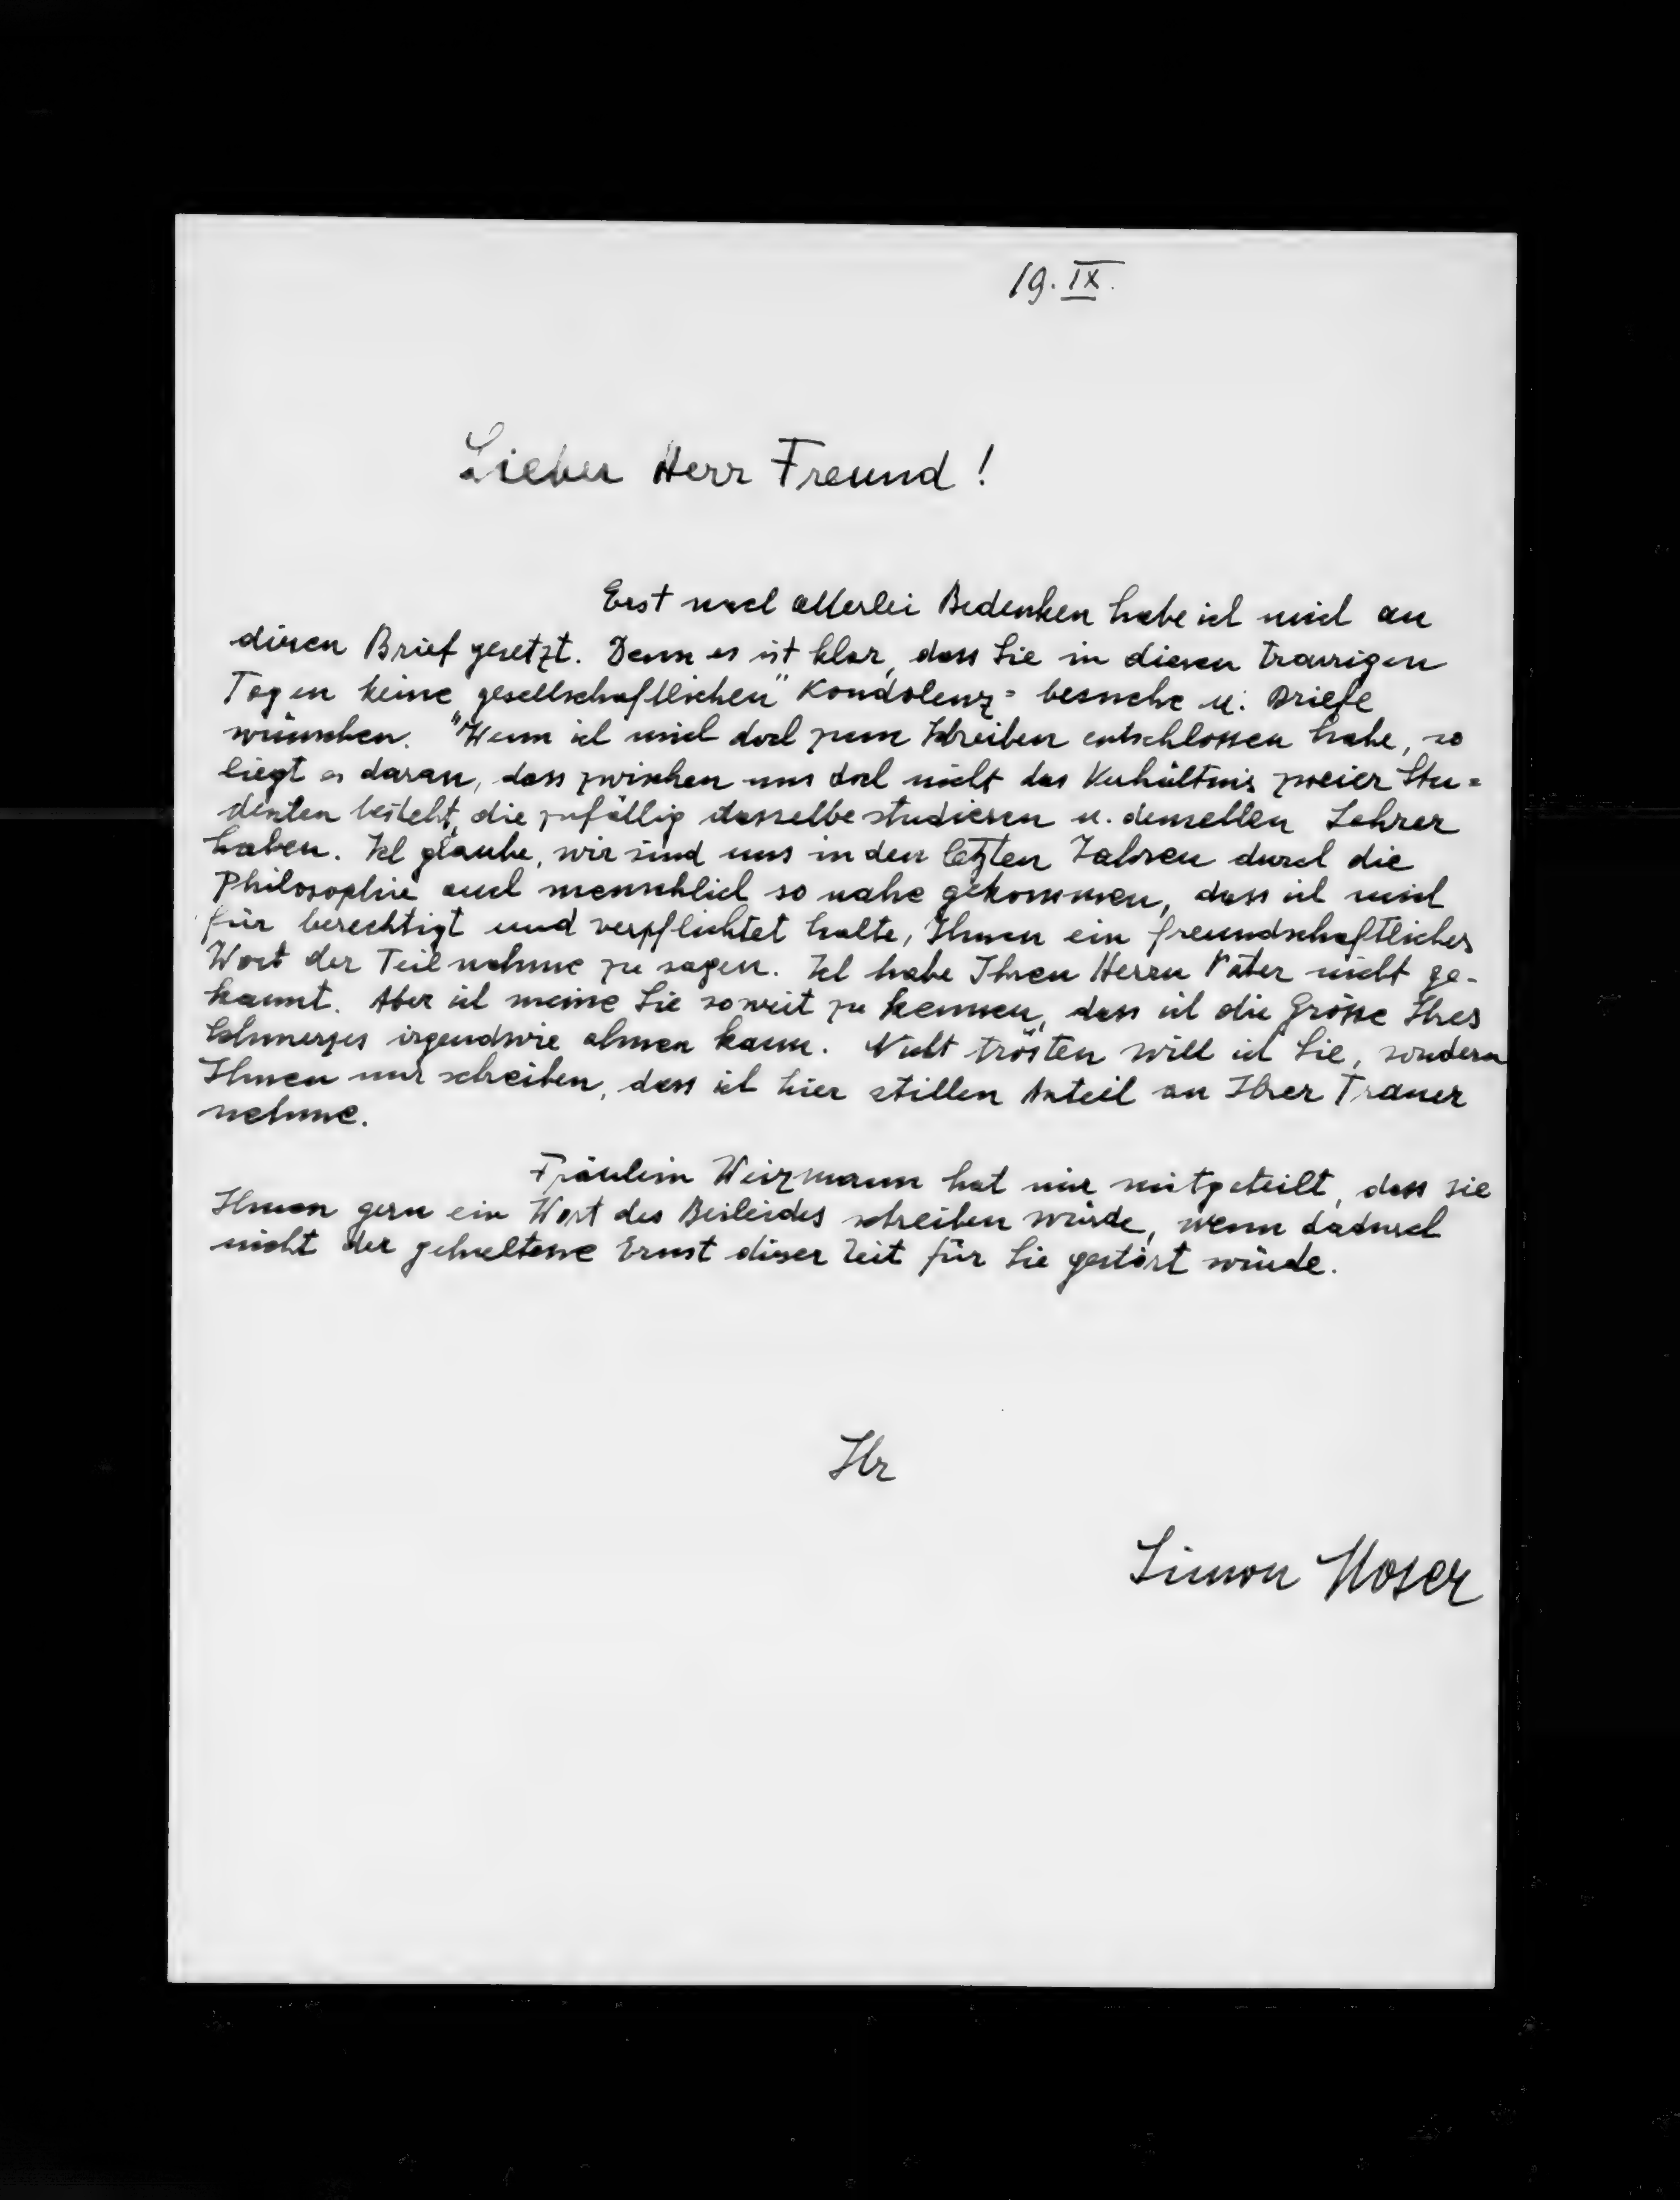 19. IX.
Lieber Herr Freund!
Erst nach allerlei Bedenken habe ich mich an
diesen Brief gesetzt. Denn es ist klar, dass Sie in diesen traurigen
Tagen keine „gesellschaftlichen" Kondolenz= besuche u. Briefe
wünschen. Wenn ich mich doch zum Schreiben entschlossen habe, so
liegt es daran, dass zwischen uns doch nicht das Verhältnis zweier Stu=
denten besteht, die zufällig dasselbe studieren u. demselben Lehrer
haben. Ich glaube, wir sind uns in den letzten Jahren durch die
Philosophie auch menschlich so nahe gekommen, dass ich mich
für berechtigt und verpflichtet halte, Ihnen ein freundschaftliches
Wort der Teilnahme zu sagen. Ich habe Ihren Herrn Vater nicht ge-
kannt. Aber ich meine Sie soweit zu kennen, dass ich die Grösse Ihres
Schmerzes irgendwie ahnen kann. Nicht trösten will ich Sie, sondern
Ihnen nur schreiben, dass ich hier stillen Anteil an Ihrer Trauer
nehme.
Fräulein Weizmann hat mir mitgeteilt, dass sie
Ihnen gern ein Wort des Beileides schreiben würde, wenn dadurch
nicht der gehaltene Ernst dieser Zeit für Sie gestört würde.
Ihr
Simon Moser